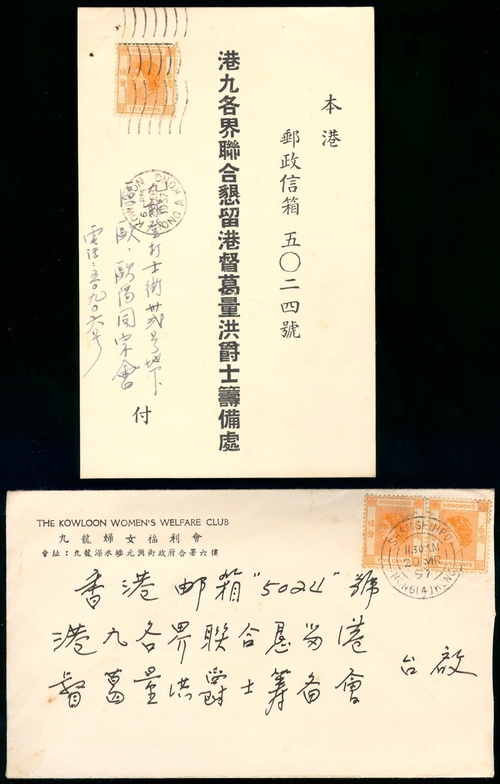 本港
郵政信箱五〇二四號
港九各界聯合懇留港督葛量洪爵士籌備處
九龍登打士街卅弍号地下
歐陽同宗會
電話：五九〇六号
付
HONGKONG
伍分
THE KOWLOON WOMEN'S WELFARE CLUB
九龍婦女福利會
會址：九龍深水埗元洲街政府合署六樓
HONGKONG
伍分
HONGKONG
SHAMSHUIPO
11.30 AM
20 MR
57
HONG (4) KONG
香港郵箱"5024"號
港九各界联合恳留港
督葛量洪爵士筹备會
台啟